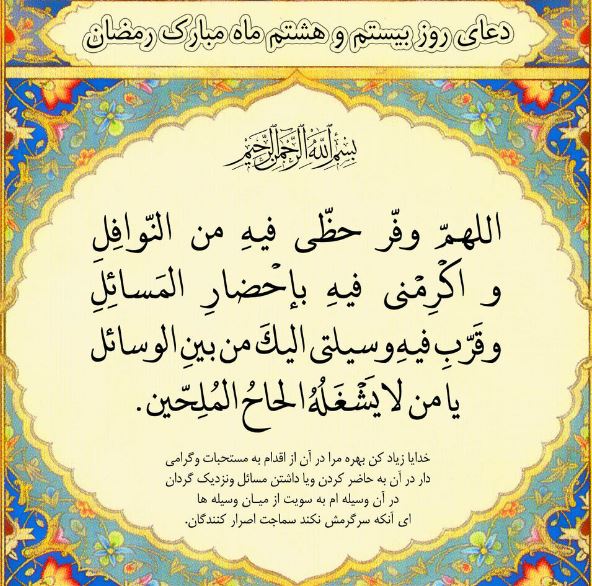 دعای روز بیستم و هشتم ماه مبارک رمضان
بسم الله الرحمن الرحیم
اللهمّ وفّر حظّی فیهِ من النّوافِلِ
و اکْرِمْنی فیهِ بإحْضارِ المَسائِلِ
وقَرّبِ فیهِ وسیلتی الیكَ من بینِ الوسائل
یا من لا یَشْغَلُهُ الحاحُ المُلِحّین.
خدایا زیاد کن بهره مرا در آن از اقدام به مستحبات وگرامی
دار در آن به حاضر کردن ویا داشتن مسائل ونزدیک گردان
در آن وسیله ام به سویت از میـان وسیله ها
ای آنکه سرگرمش نکند سماجت اصرار کنندگان.